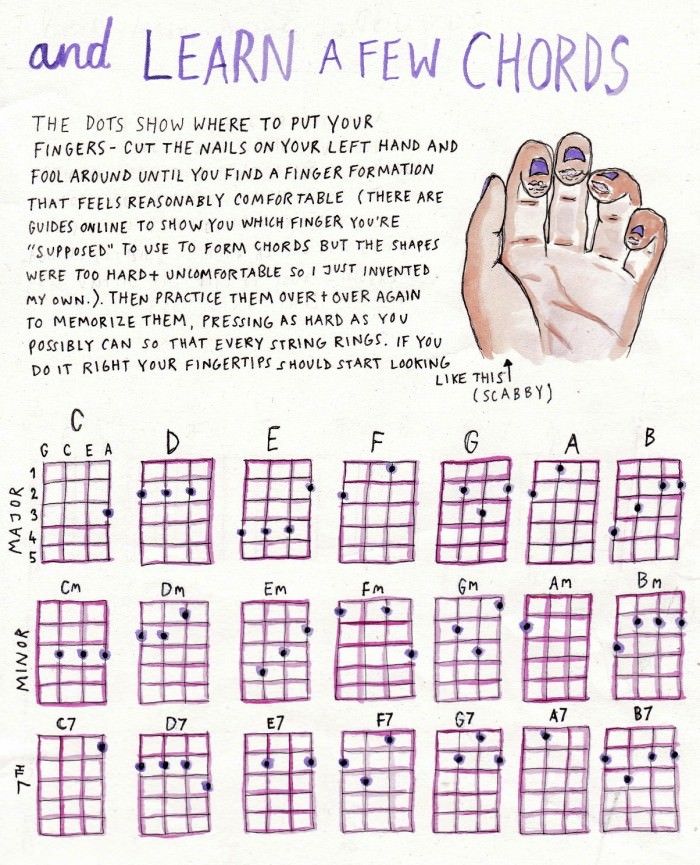 and LEARN A FEW CHORDS
THE DOTS SHOW WHERE TO PUT YOUR
FINGERS - CUT THE NAILS ON YOUR LEFT HAND AND
FOOL AROUND UNTIL YOU FIND A FINGER FORMATION
THAT FEELS REASONABLY COMFORTABLE (THERE ARE
GUIDES ONLINE TO SHOW YOU WHICH FINGER YOU'RE
"SUPPOSED" TO USE TO FORM CHORDS BUT THE SHAPES
WERE TOO HARD + UNCOMFORTABLE SO I JUST INVENTED
MY OWN.). THEN PRACTICE THEM OVER + OVER AGAIN
TO MEMORIZE THEM, PRESSING AS HARD AS YOU
POSSIBLY CAN SO THAT EVERY STRING RINGS. IF YOU
DO IT RIGHT YOUR FINGERTIPS SHOULD START LOOKING
LIKE THIS
(SCABBY)
C D E F G A B
G C E A
1
2
3
4
5
MAJOR
Cm Dm Em Fm Gm Am Bm
MINOR
C7 D7 E7 F7 G7 A7 B7
7TH